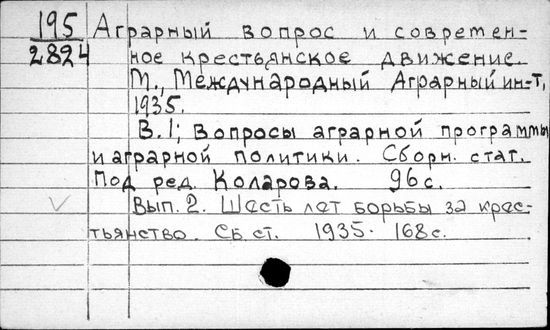 195 Аграрный вопрос и современ-
2824 ное крестьянское движение.
М., Международный Аграрный ин-т,
1935.
В. 1; Вопросы аграрной программы
и аграрной политики. Сборн. стат.
Под ред. Коларова. 96 с.
Вып. 2. Шесть лет борьбы за крес-
тьянство. Сб. ст. 1935. 168 с.